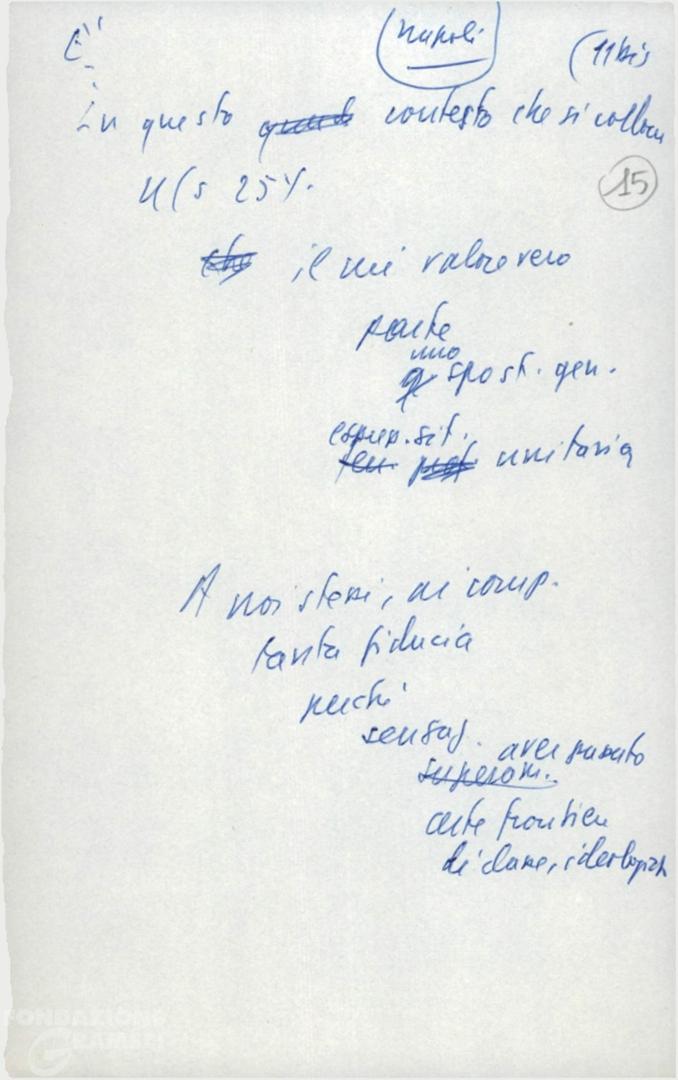 E'
Napoli
(11bis
in questo contesto che si colloca
il 25%.
15
che il mi valore vero
parte
uno
spost. gen.
espress. sit.
unitaria
A noi stessi, ai comp.
tanta fiducia
perché
sensaz. aver superato
superam.
certe frontiere
di classe, ideologiche
FONDAZIONE
GRAMSCI